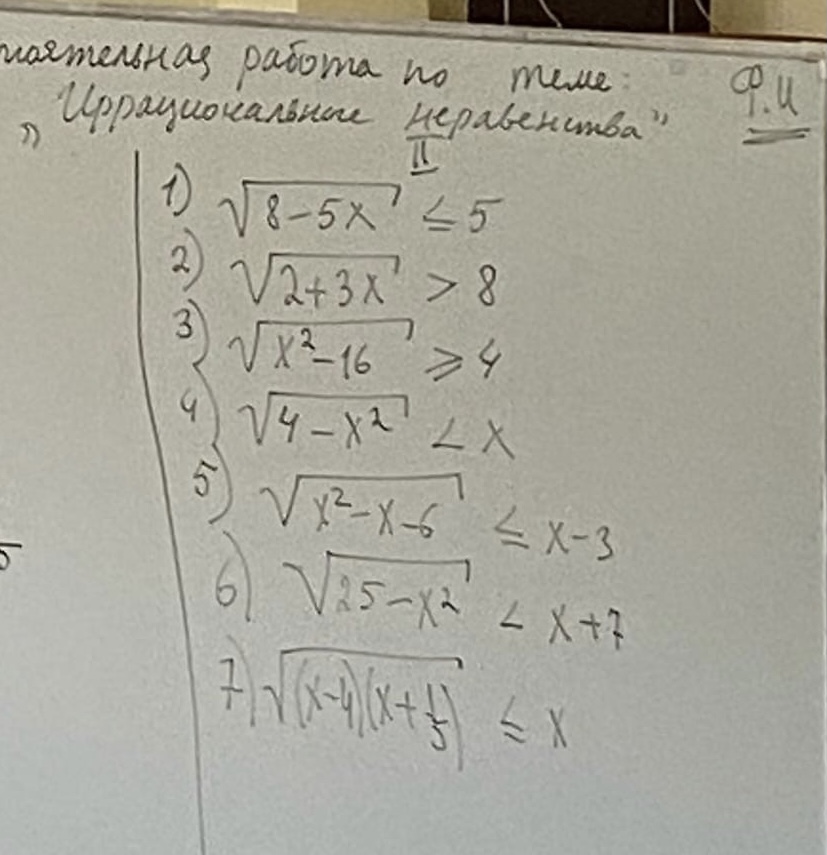 работа по теме: Ф.И
"Иррациональные неравенства"
II
1) √(8-5x) ≤ 5
2) √(2+3x) > 8
3) √(x²-16) ⩾ 4
4) √(4-x²) < x
5) √(x²-x-6) ≤ x-3
6) √(25-x²) < x+7
7) √((x-4)(x+1/5)) ≤ x